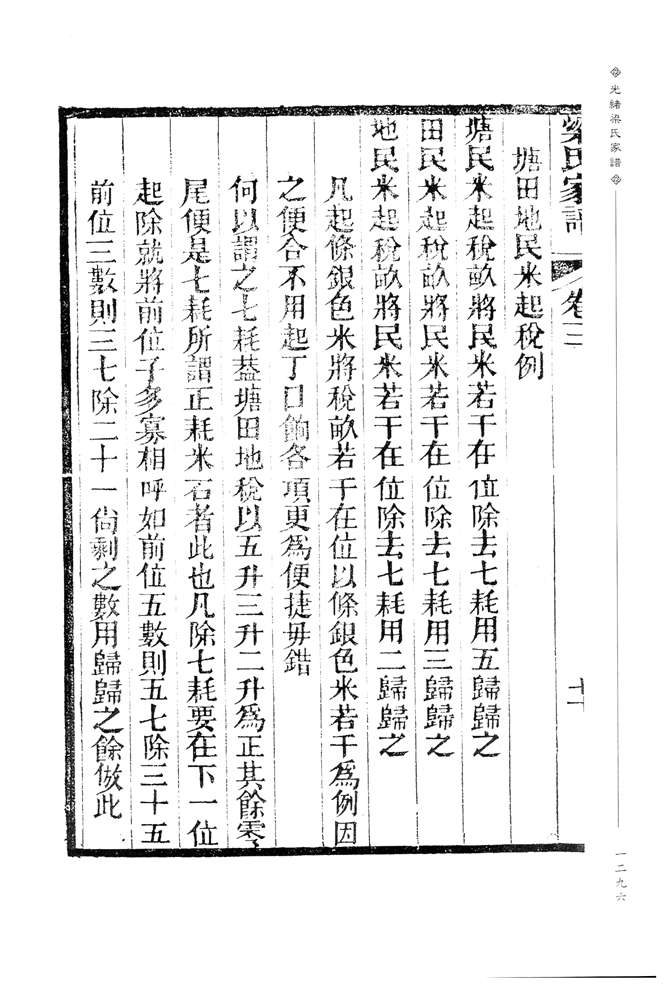 光緒梁氏家譜
一二九六
梁氏家譜 卷三 十
塘田地民米起稅例
塘民米起稅畝將民米若干在位除去七耗用五歸歸之
田民米起稅畝將民米若干在位除去七耗用三歸歸之
地民米起稅畝將民米若干在位除去七耗用二歸歸之
凡起條銀色米將稅畝若干在位以條銀色米若干爲例因
之便合不用起丁口餉各項更爲便捷毋錯
何以謂之七耗葢塘田地稅以五升三升二升爲正其餘零
尾便是七耗所謂正耗米石者此也凡除七耗要在下一位
起除就將前位子多寡相呼如前位五數則五七除三十五
前位三數則三七除二十一尙剩之數用歸歸之餘倣此